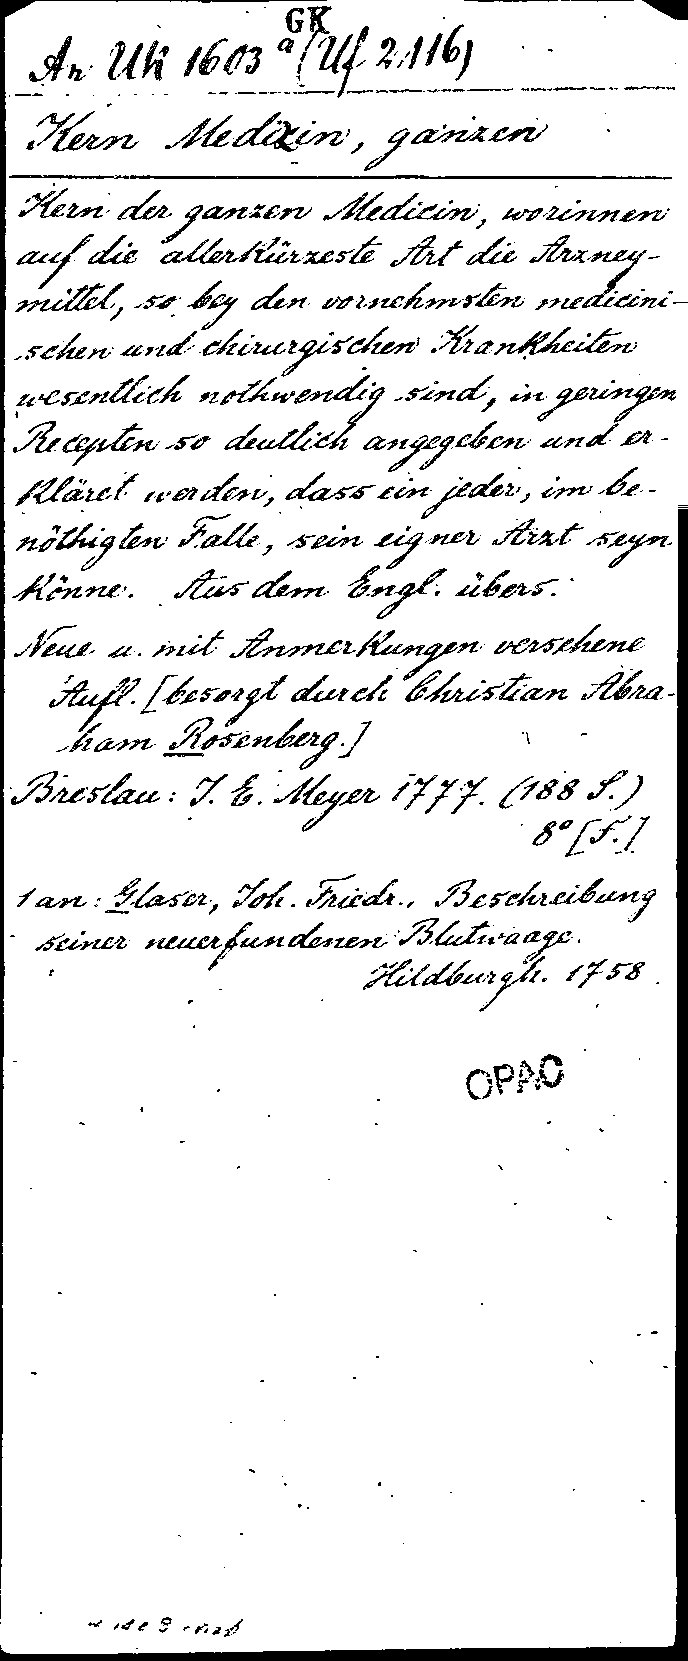 GK
An Uk 1603 a (Uf 2116)
Kern Medizin, ganzen
Kern der ganzen Medicin, worinnen
auf die allerkürzeste Art die Arzney-
mittel, so bey den vornehmsten medicini-
schen und chirurgischen Krankheiten
wesentlich nothwendig sind, in geringen
Recepten so deutlich angegeben und er-
kläret werden, dass ein jeder, im be-
nöthigten Falle, sein eigner Arzt seyn
könne. Aus dem Engl. übers.
Neue u. mit Anmerkungen versehene
Aufl. [besorgt durch Christian Abra-
ham Rosenberg.]
Breslau: J. E. Meyer 1777. (188 S.)
8° [F.]
1 an: Glaser, Joh. Friedr., Beschreibung
seiner neuerfundenen Blutwaage.
Hildburgh. 1758
OPAC